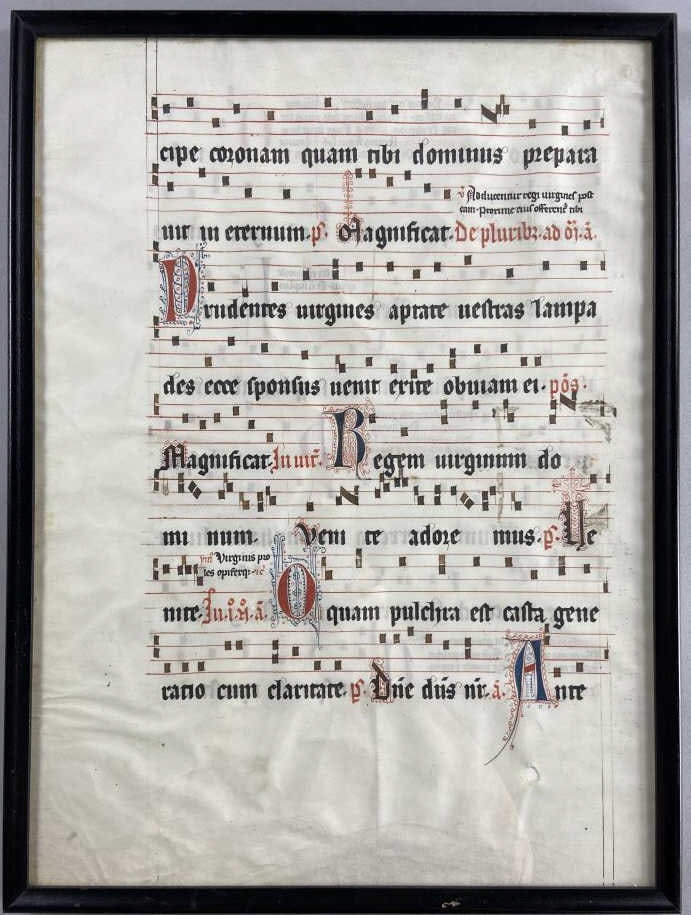 cipe coronam quam tibi dominus prepara
℣ Adducentur regi virgines post
eam. Proxime eius offerent tibi
uit in eternum. p̄. Magnificat. De pluribꝫ. ad oı̄. ā.
Prudentes uirgines aptate uestras lampa
des ecce sponsus uenit exite obuiam ei. pōs.
Magnificat. In uit. Regem uirginum do
mi num. Veni te adore mus. p̄. Ue
Virginis pro
les opifexqꝫ
nite. O quam pulchra est casta gene
ratio cum claritate. p̄. Dn̄e dn̄s nr̄. ā. Ante